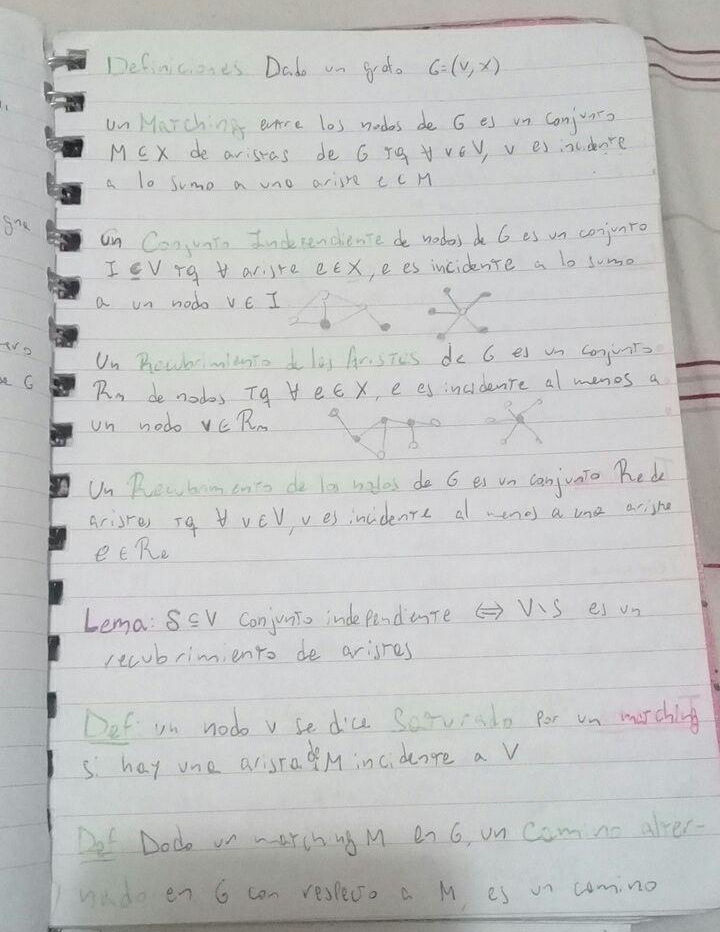 Definiciones Dado un grafo G=(V,X)
un Matching entre los nodos de G es un conjunto
M ⊆ X de aristas de G tq ∀ v ∈ V, v es incidente
a lo sumo a una arista e ∈ M
Un Conjunto Independiente de nodos de G es un conjunto
I ⊆ V tq ∀ arista e ∈ X, e es incidente a lo sumo
a un nodo v ∈ I
Un Recubrimiento de las Aristas de G es un conjunto
Rn de nodos tq ∀ e ∈ X, e es incidente al menos a
un nodo v ∈ Rn
Un Recubrimiento de los nodos de G es un conjunto Re de
aristas tq ∀ v ∈ V, v es incidente al menos a una arista
e ∈ Re
Lema: S ⊆ V conjunto independiente ⟺ V \ S es un
recubrimiento de aristas
Def: un nodo v se dice Saturado por un matching
si hay una arista de M incidente a V
Def Dado un matching M en G, un Camino alter-
nado en G con respecto a M, es un camino
e G